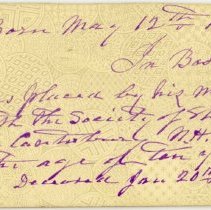 Born May 12th
In Bos
s placed by his m
The Society of Sh
N.H.
the age of ten y
Deceased Jan 20th